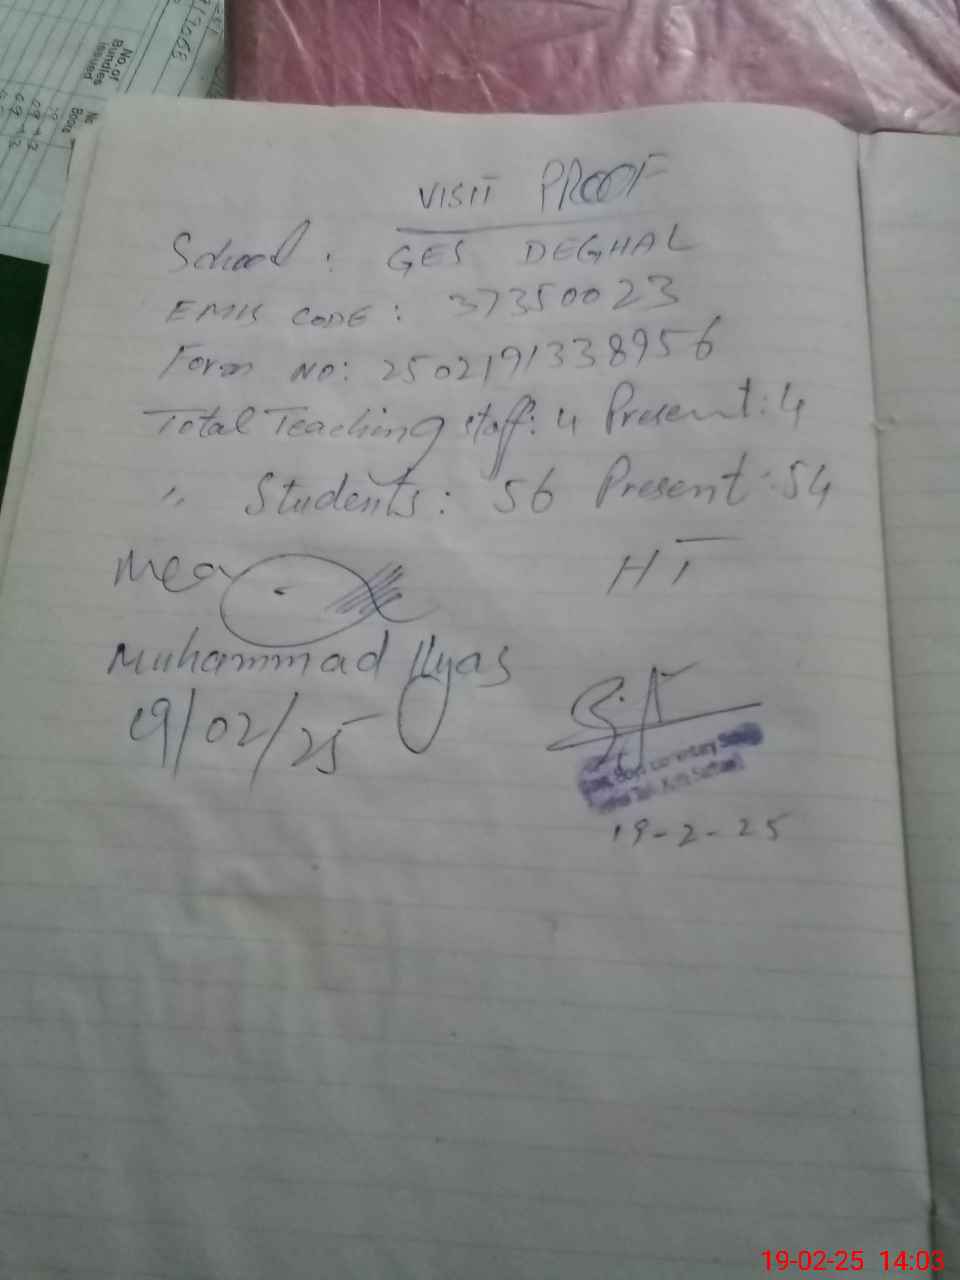 No. of
Bundles
issued
VISIT PROOF
School : GES DEGHAL
EMIS CODE : 37350023
Form NO: 2502191338956
Total Teaching staff: 4 Present: 4
〃 Students: 56 Present: 54
Mea
HT
Muhammad Ilyas
19/02/25
19-2-25
19-02-25 14:03